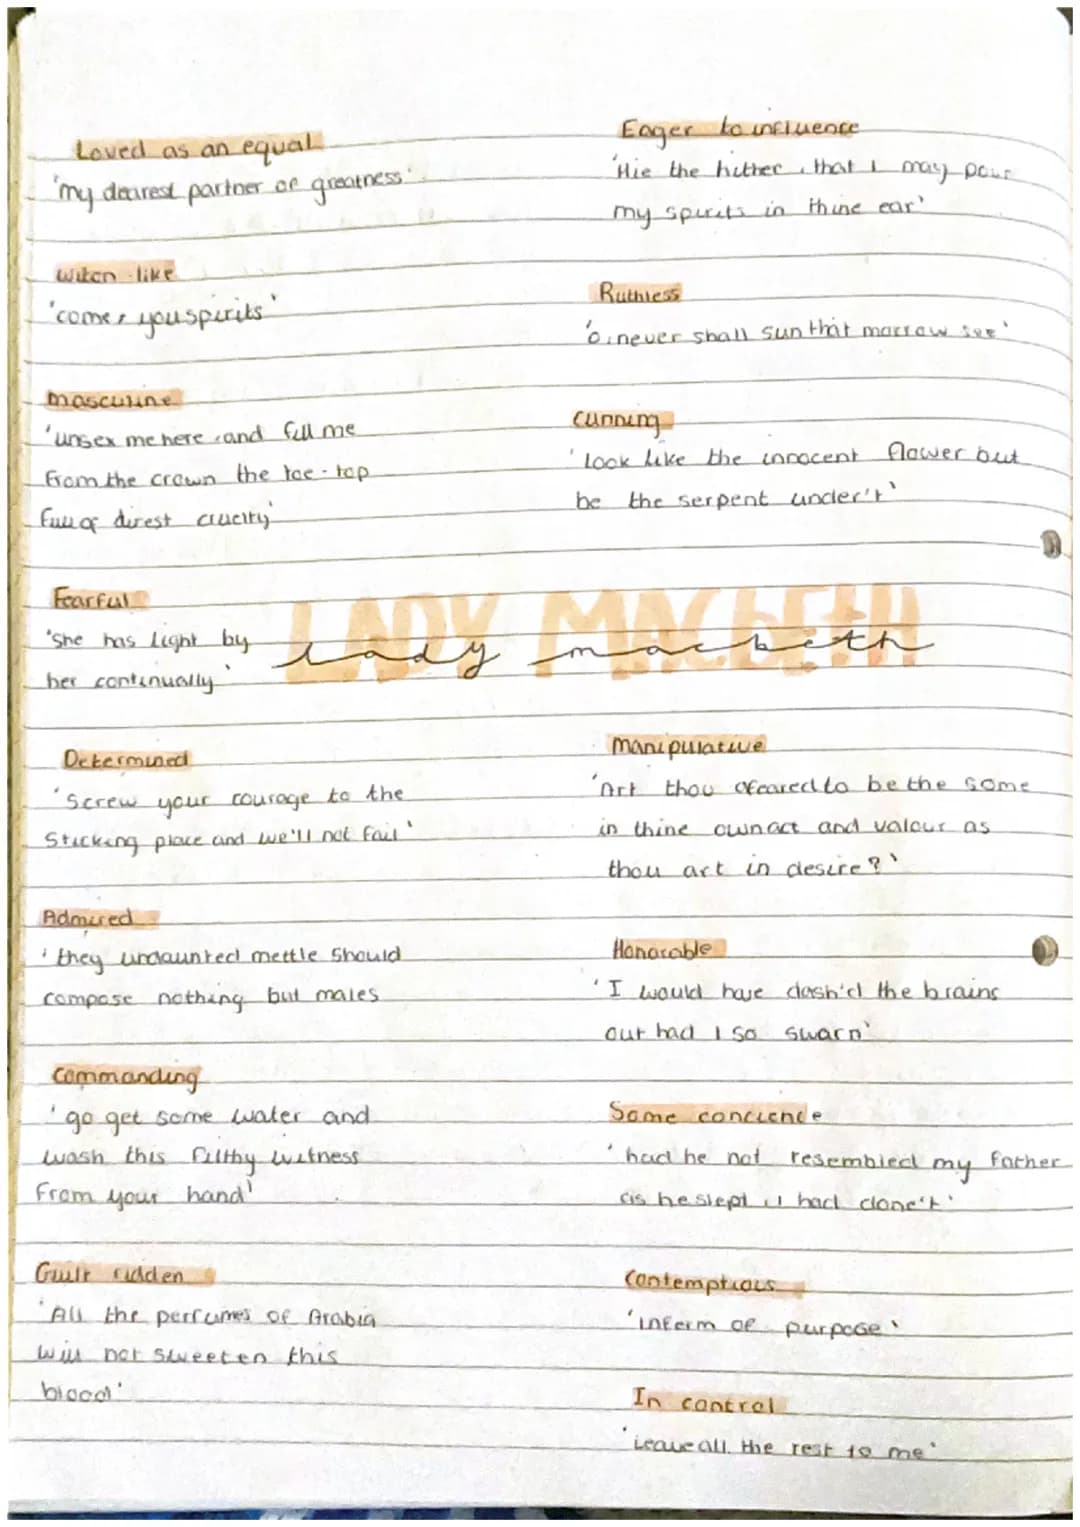 Loved as an equal
'my dearest partner of greatness'
witch-like
'come, you spirits'
masculine
'unsex me here, and fill me
from the crown the toe-top
full of direst cruelty'
Fearful
'She has light by
her continually'
LADY MACBETH
lady macbeth
Determined
'Screw your courage to the
Sticking place and we'll not fail'
Admired
'they undaunted mettle should
compose nothing but males
Commanding
'go get some water and
wash this filthy witness
From your hand'
Guilt ridden
'All the perfumes of Arabia
will not sweeten this
blood'
Eager to influence
'Hie the hither, that I may pour
my spirits in thine ear'
Ruthless
'O, never shall sun that morrow see'
Cunning
'look like the innocent flower but
be the serpent under't'
Manipulative
'Art thou afeared to be the same
in thine own act and valour as
thou art in desire?'
Honorable
'I would have dash'd the brains
out had I so sworn'
Some concience
'had he not resembled my father
as he slept, I had done't'
Contemptious
'inferm of purpose'
In control
'Leave all the rest to me'